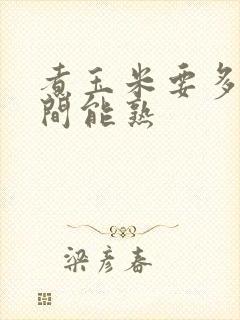 煮玉米要多
間能熟
梁彥春